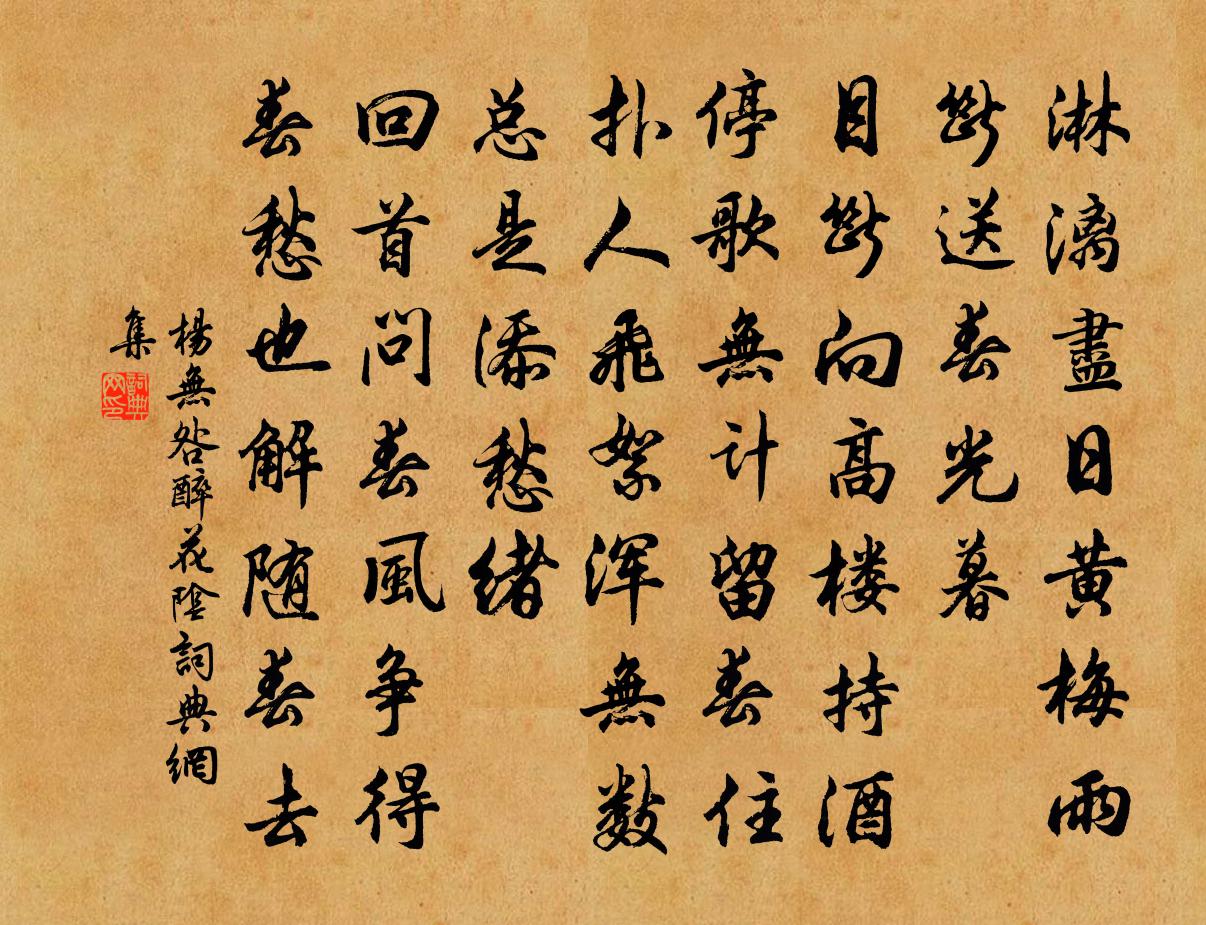 淋漓盡日黄梅雨
斷送春光暮
目斷向高楼持酒
停歌無計留春住
扑人飛絮浑無数
总是添愁绪
回首问春風争得
春愁也解随春去
楊無咎醉花陰詞典網
集
詞典网印